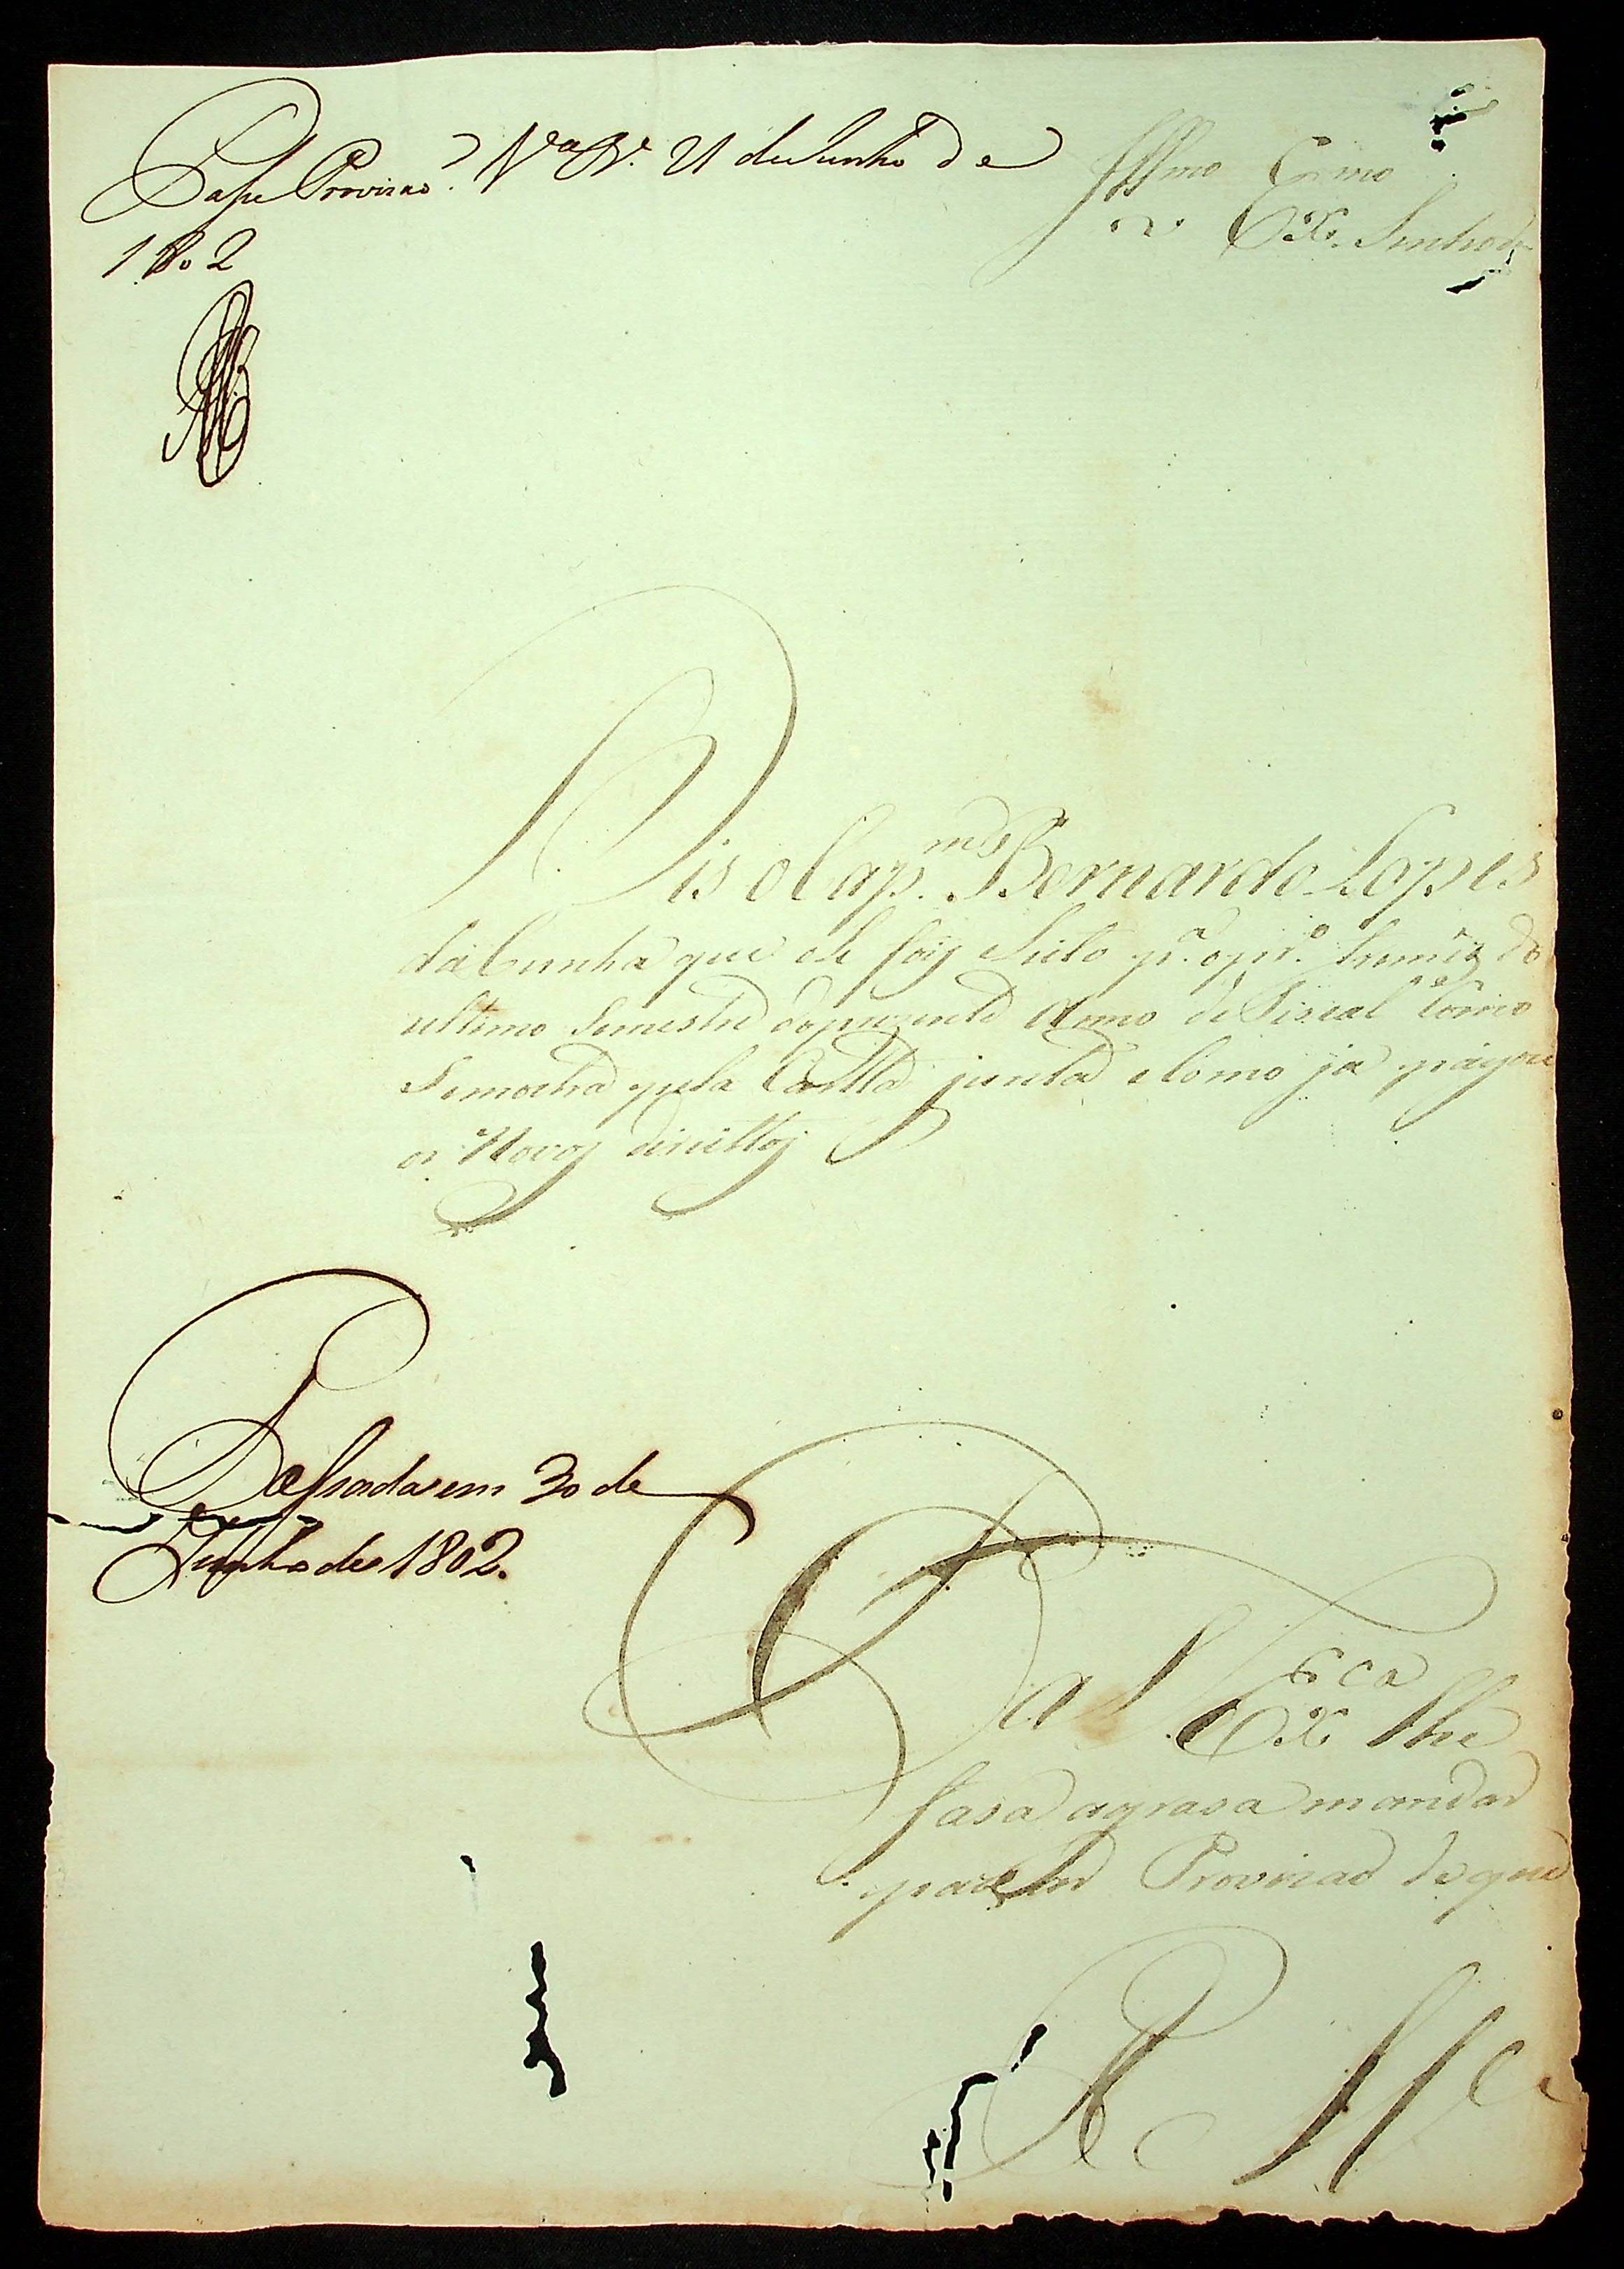 Passe Provisaõ. Vª Rª 21 de Junho de
1802
Illmo Exmo
Senhor
Dis o Cap.m Bernardo Lopes
da Cunha que ele foi eleito pª o prº trimestre do
ultimo Semestre do prezente Anno de Fiscal como
Se mostra pela Carta junta e como ja pagou
os Novos direittos
Passada em 30 de
Junho de 1802.
P a V Exca lhe
fasa a grasa mandar
passar Provizaõ de que
R Mce